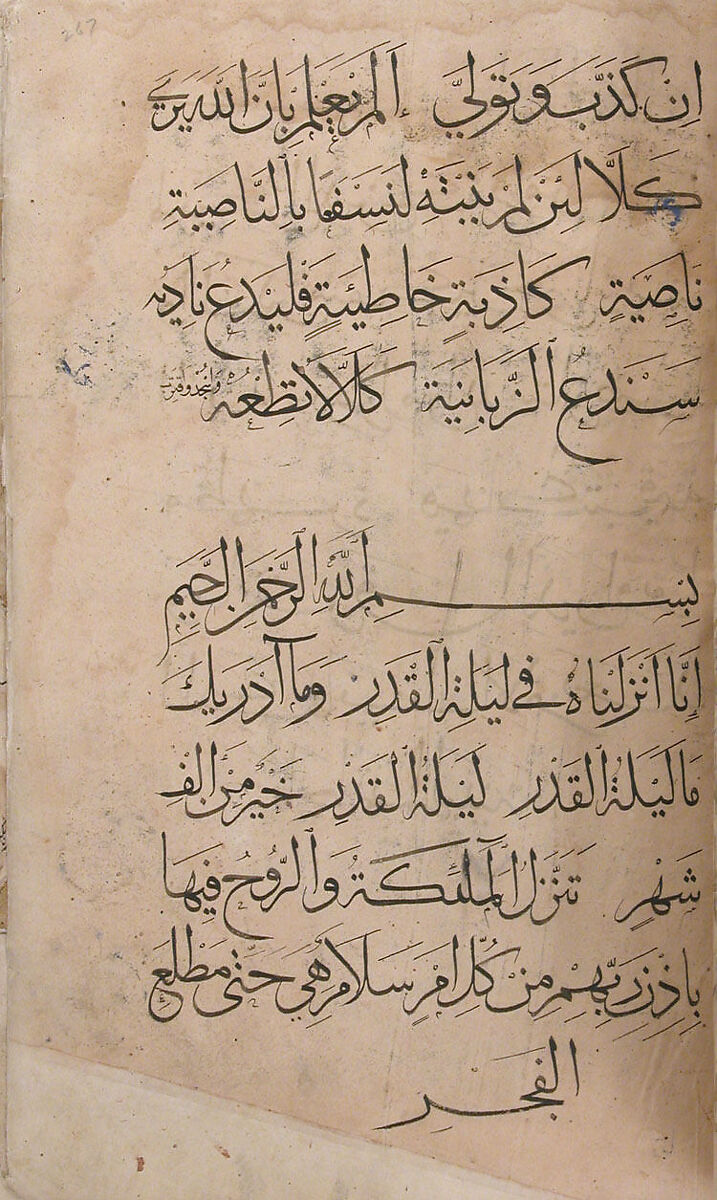 267
اِنْ كَذَّبَ وَتَوَلّٰي اَلَمْ يَعْلَمْ بِاَنَّ اللّٰهَ يَرٰي
كَلَّا لَئِنْ لَمْ يَنْتَهِ لَنَسْفَعًا بِالنَّاصِيَةِ
نَاصِيَةٍ كَاذِبَةٍ خَاطِئَةٍ فَلْيَدْعُ نَادِيَه
سَنَدْعُ الزَّبَانِيَةَ كَلَّا لَا تُطِعْهُ وَاسْجُدْ وَاقْتَرِبْ
بِسْمِ اللّٰهِ الرَّحْمٰنِ الرَّحِيمِ
اِنَّا اَنْزَلْنَاهُ فِي لَيْلَةِ الْقَدْرِ وَمَا آَدْرٰيكَ
مَا لَيْلَةُ الْقَدْرِ لَيْلَةُ الْقَدْرِ خَيْرٌ مِنْ اَلْفِ
شَهْرٍ تَنَزَّلُ الْمَلٰٓئِكَةُ وَالرُّوحُ فِيهَا
بِاِذْنِ رَبِّهِمْ مِنْ كُلِّ اَمْرٍ سَلَامٌ هِيَ حَتّٰى مَطْلَعِ
الْفَجْرِ